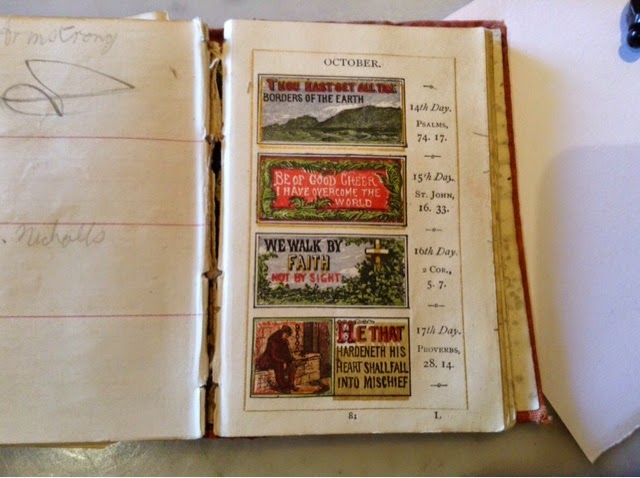 Armstrong
Nicholls
OCTOBER.
THOU HAST SET ALL THE
BORDERS OF THE EARTH
14th Day.
PSALMS,
74. 17.
BE OF GOOD CHEER
I HAVE OVERCOME THE
WORLD
15th Day.
ST. JOHN,
16. 33.
WE WALK BY
FAITH
NOT BY SIGHT
16th Day.
2 COR.,
5. 7.
HE THAT
HARDENETH HIS
HEART SHALL FALL
INTO MISCHIEF
17th Day.
PROVERBS,
28. 14.
81 L